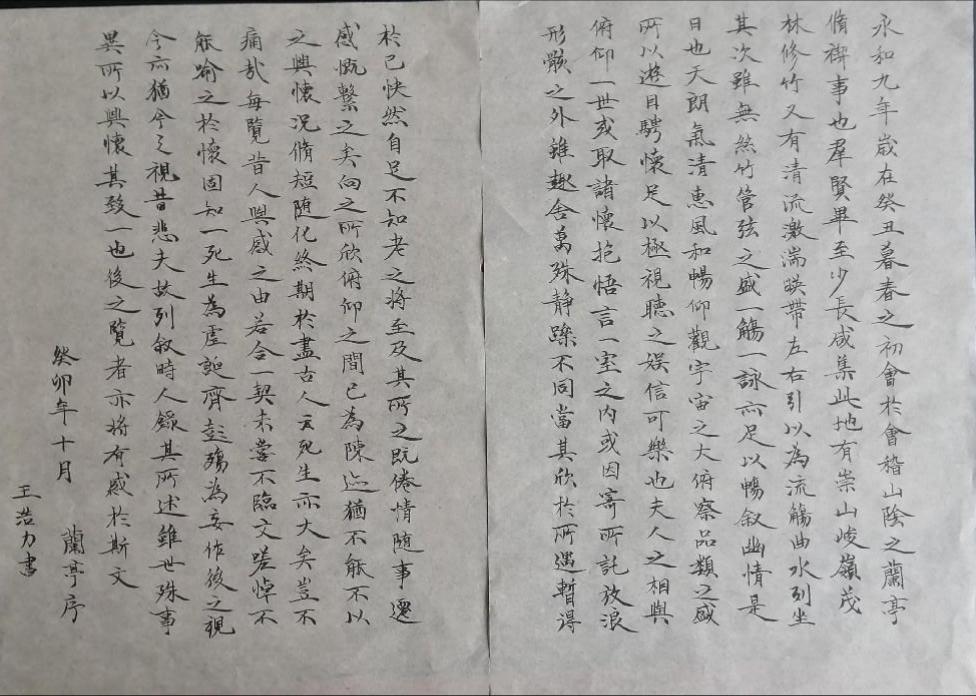 永和九年歲在癸丑暮春之初會於會稽山陰之蘭亭
脩禊事也羣賢畢至少長咸集此地有崇山峻嶺茂
林修竹又有清流激湍暎帶左右引以為流觴曲水列坐
其次雖無絲竹管弦之盛一觴一詠亦足以暢敘幽情是
日也天朗氣清惠風和暢仰觀宇宙之大俯察品類之盛
所以遊目騁懷足以極視聽之娛信可樂也夫人之相與
俯仰一世或取諸懷抱悟言一室之內或因寄所託放浪
形骸之外雖趣舍萬殊静躁不同當其欣於所遇暫得
於己快然自足不知老之將至及其所之既倦情隨事遷
感慨繫之矣向之所欣俯仰之間已為陳迹猶不能不以
之興懷況脩短隨化終期於盡古人云死生亦大矣豈不
痛哉每覽昔人興感之由若合一契未嘗不臨文嗟悼不
能喻之於懷固知一死生為虛誕齊彭殤為妄作後之視
今亦猶今之視昔悲夫故列敘時人錄其所述雖世殊事
異所以興懷其致一也後之覽者亦將有感於斯文
癸卯年十月 蘭亭序
王浩力書